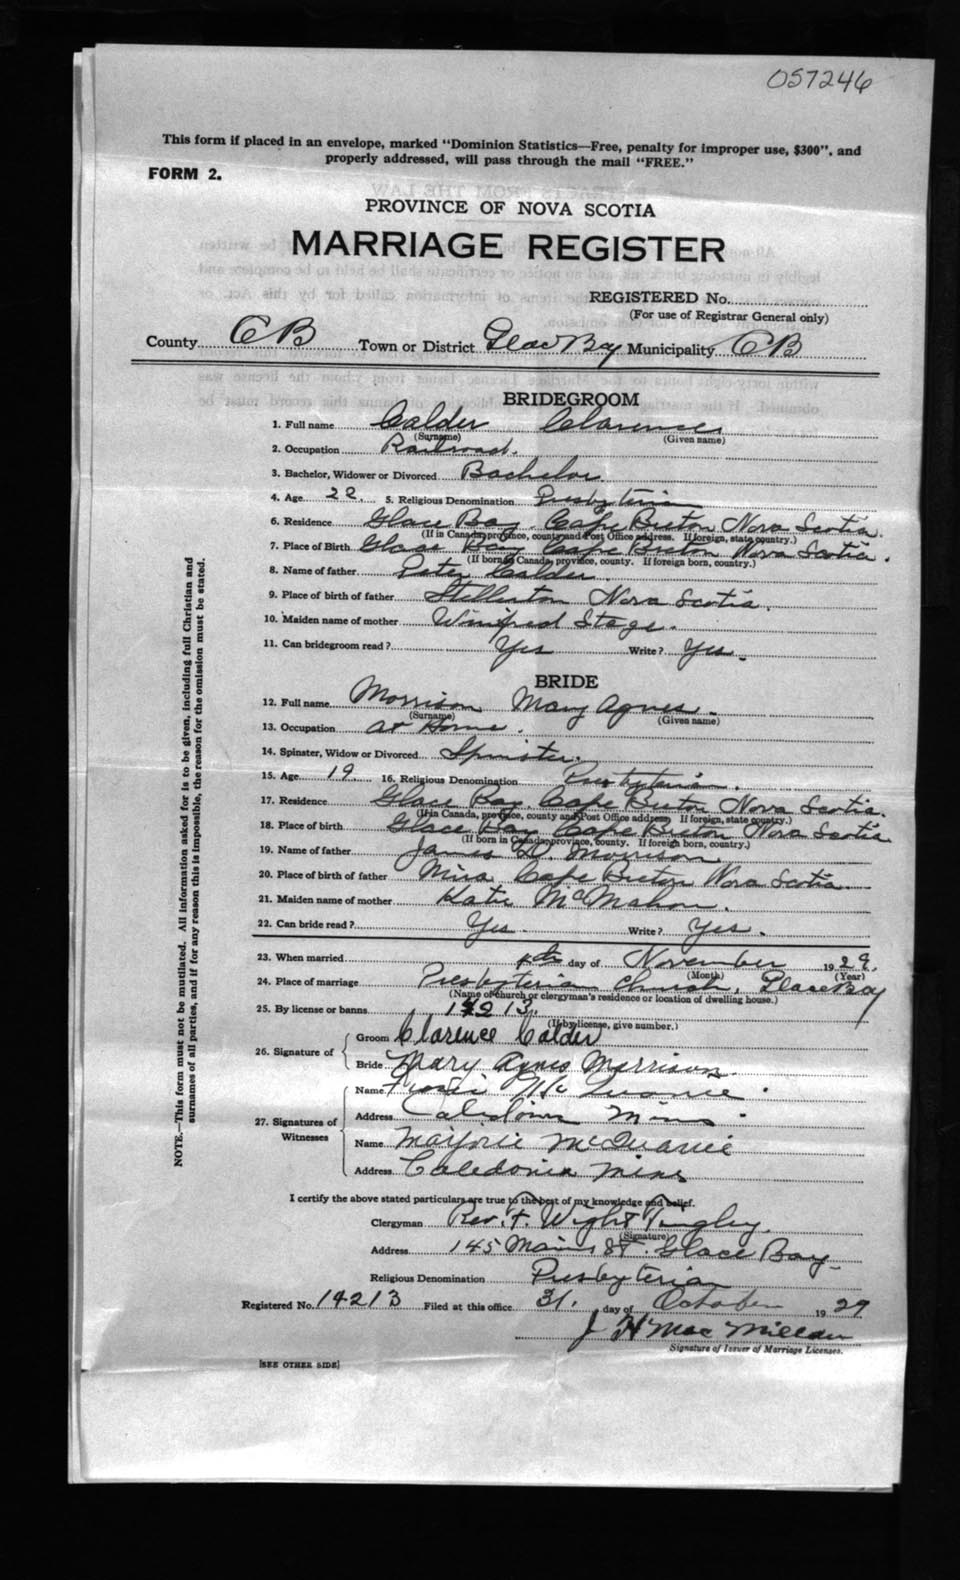 057246
This form if placed in an envelope, marked "Dominion Statistics—Free, penalty for improper use, $300", and
properly addressed, will pass through the mail "FREE."
FORM 2.
PROVINCE OF NOVA SCOTIA
MARRIAGE REGISTER
REGISTERED No.
(For use of Registrar General only)
County CB Town or District Glace Bay Municipality CB
BRIDEGROOM
1. Full name Calder Clarence
(Surname) (Given name)
2. Occupation Railroad.
3. Bachelor, Widower or Divorced Bachelor
4. Age 22. 5. Religious Denomination Presbyterian
6. Residence Glace Bay. Cape Breton Nova Scotia.
(If in Canada, province, county and Post Office address. If foreign, state country.)
7. Place of Birth Glace Bay Cape Breton Nova Scotia.
(If born in Canada, province, county. If foreign born, country.)
8. Name of father Peter Calder.
9. Place of birth of father Stellerton Nova Scotia.
10. Maiden name of mother Winifred Stage.
11. Can bridegroom read? Yes Write? Yes.
BRIDE
12. Full name Morrison Mary Agnes.
(Surname) (Given name)
13. Occupation at Home.
14. Spinster, Widow or Divorced Spinster.
15. Age 19 16. Religious Denomination Presbyterian.
17. Residence Glace Bay. Cape Breton Nova Scotia.
(If in Canada, province, county and Post Office address. If foreign, state country.)
18. Place of birth Glace Bay Cape Breton Nova Scotia
(If born in Canada, province, county. If foreign born, country.)
19. Name of father James D. Morrison
20. Place of birth of father Mira Cape Breton Nova Scotia.
21. Maiden name of mother Katie McMahon.
22. Can bride read? Yes. Write? Yes.
23. When married day of November 1929.
(Month) (Year)
24. Place of marriage Presbyterian Church, Glace Bay
(Name of church or clergyman's residence or location of dwelling house.)
25. By license or banns 14213.
(If by license, give number.)
26. Signature of Groom Clarence Calder
Bride Mary Agnes Morrison.
27. Signatures of Witnesses
Name
Address Caledonia Mines.
Name Marjorie McQuarrie
Address Caledonia Mines
I certify the above stated particulars are true to the best of my knowledge and belief.
Clergyman Rev. F. Wight Tingley.
(Signature)
Address 145 Main St. Glace Bay
Religious Denomination Presbyterian
Registered No. 14213 Filed at this office 31. day of October 1929
J H Mac Millan
Signature of Issuer of Marriage Licenses.
[SEE OTHER SIDE]
NOTE.—This form must not be mutilated. All information asked for is to be given, including full Christian and
surnames of all parties, and if for any reason this is impossible, the reason for the omission must be stated.